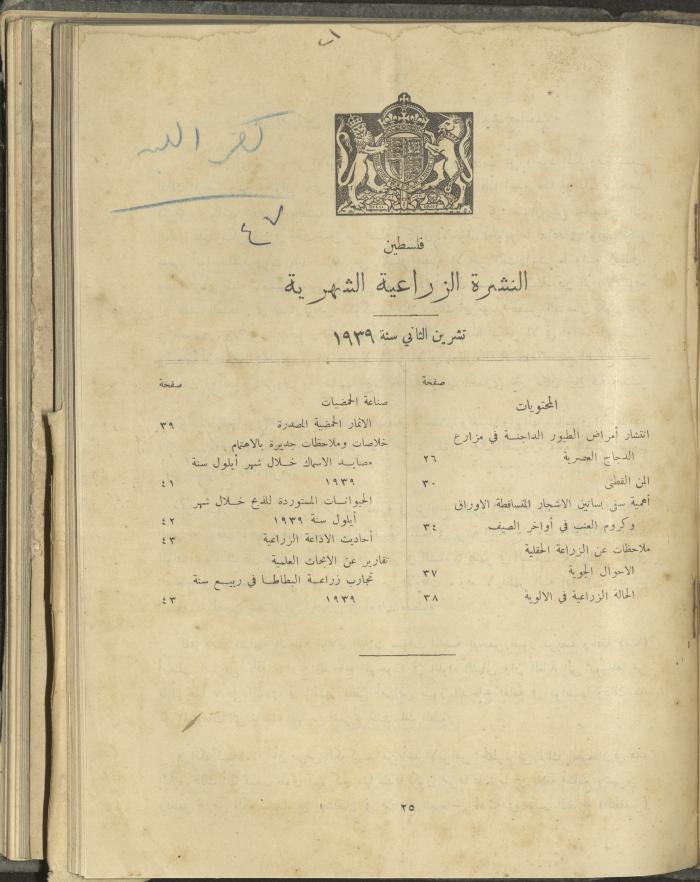 كفر اللبد
٤٧
فلسطين
النشرة الزراعية الشهرية
تشرين الثاني سنة ١٩٣٩
صفحة
المحتويات
انتشار أمراض الطيور الداجنة في مزارع
الدجاج العصرية ٢٦
المن القطني ٣٠
أهمية سقي بساتين الاشجار المتساقطة الاوراق
وكروم العنب في أواخر الصيف ٣٤
ملاحظات عن الزراعة الحقلية
الاحوال الجوية ٣٧
الحالة الزراعية في الالوية ٣٨
صفحة
صناعة الحمضيات
الاثمار الحمضية المصدرة ٣٩
خلاصات وملاحظات جديرة بالاهتمام
مصايد الاسماك خلال شهر أيلول سنة
١٩٣٩ ٤١
الحيوانات المستوردة للذبح خلال شهر
أيلول سنة ١٩٣٩ ٤٢
أحاديث الاذاعة الزراعية ٤٣
تقارير عن الابحاث العلمية
تجارب زراعة البطاطا في ربيع سنة
١٩٣٩ ٤٣
٢٥